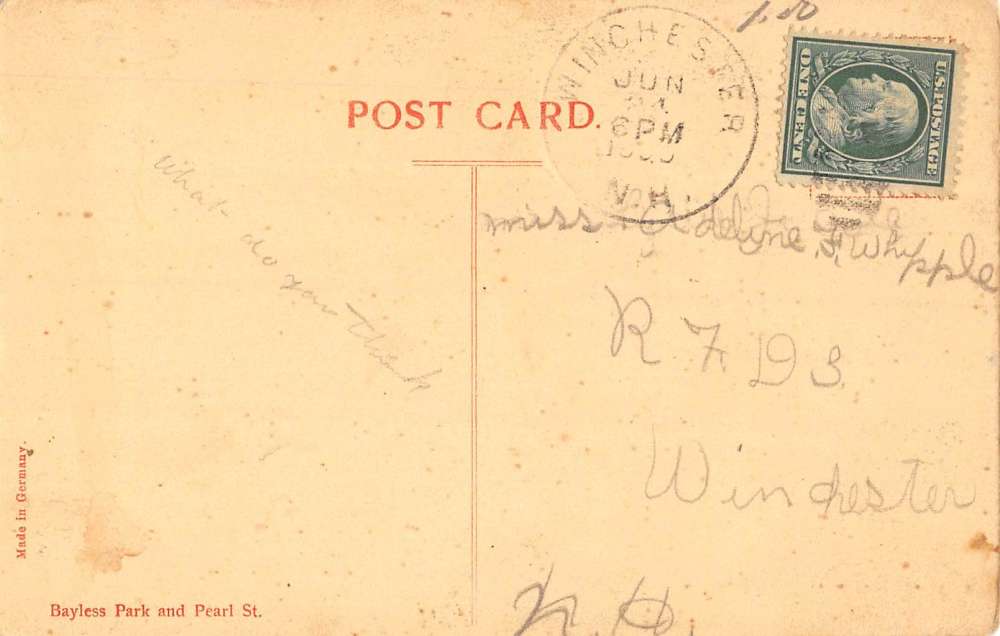 1.00
WINCHESTER
JUN
6 PM
N.H.
U.S. POSTAGE
ONE CENT
POST CARD.
What
do you think
Miss Adeline, F, Whipple
R F D 3.
Winchester
N. H.
Made in Germany.
Bayless Park and Pearl St.